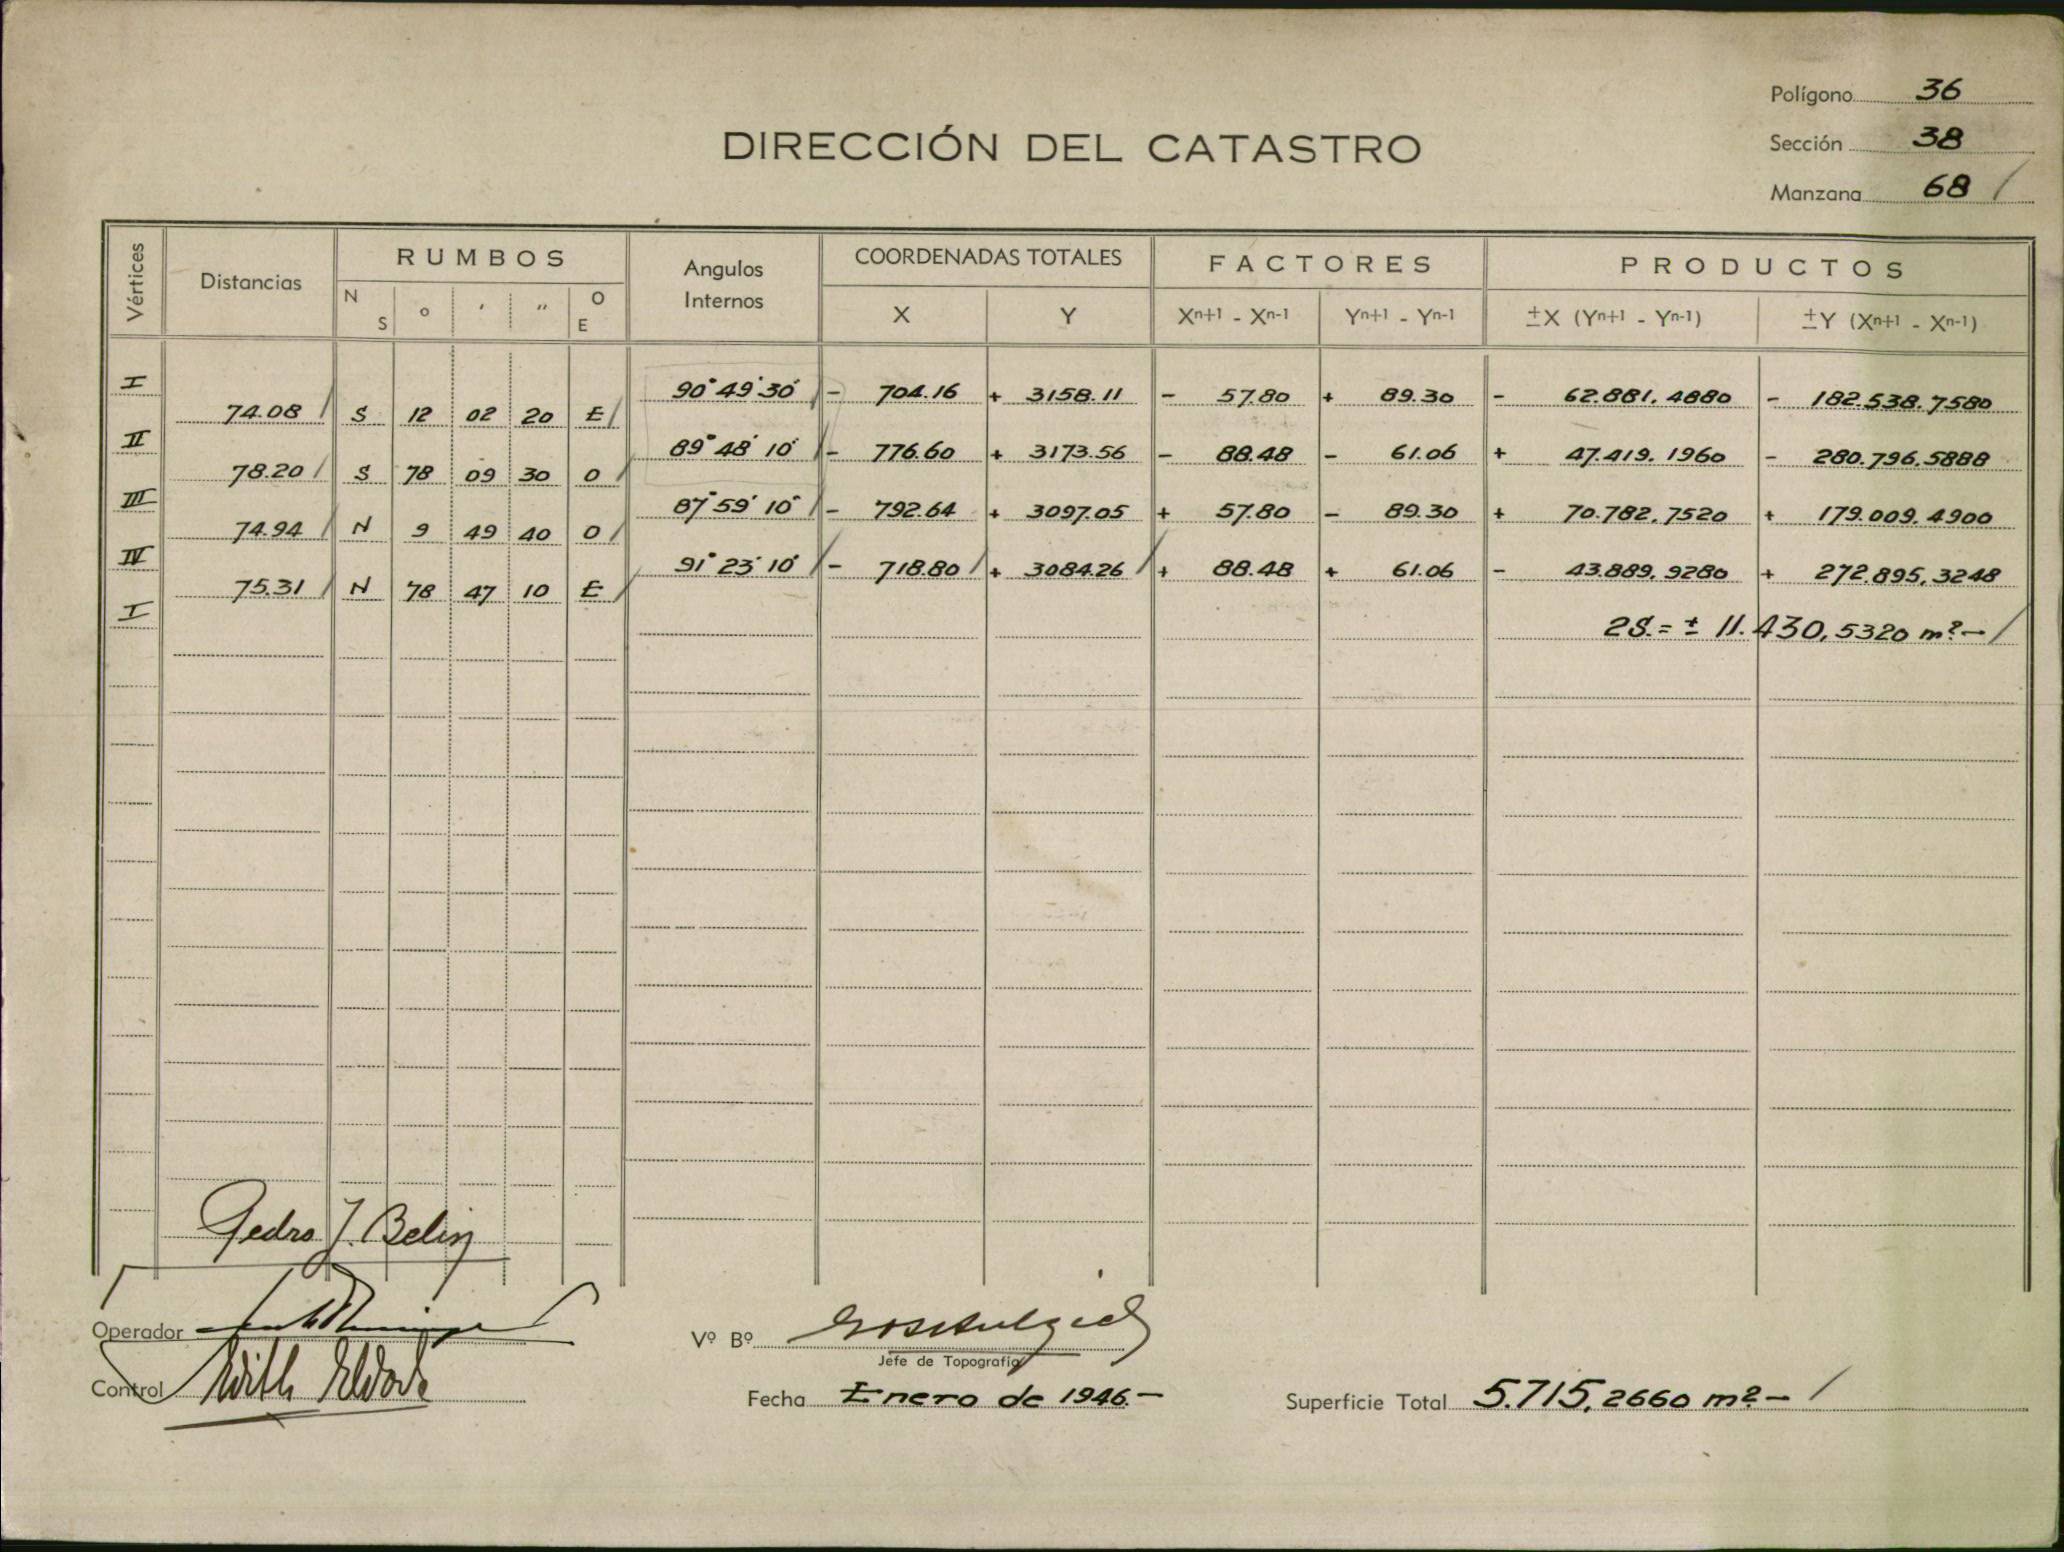 Polígono 36
DIRECCIÓN DEL CATASTRO
Sección 38
Manzana 68 /
Vértices Distancias RUMBOS Angulos Internos COORDENADAS TOTALES FACTORES PRODUCTOS
N S ° ' " O E X Y Xn+1 - Xn-1 Yn+1 - Yn-1 ±X (Yn+1 - Yn-1) ±Y (Xn+1 - Xn-1)
I 90° 49' 30" / - 704.16 + 3158.11 - 57.80 + 89.30 - 62.881,4880 - 182.538,7580
74.08 / S 12 02 20 E /
II 89° 48' 10" / - 776.60 + 3173.56 - 88.48 - 61.06 + 47.419,1960 - 280.796,5888
78.20 / S 78 09 30 O /
III 87° 59' 10" / - 792.64 + 3097.05 + 57.80 - 89.30 + 70.782,7520 + 179.009,4900
74.94 / N 9 49 40 O /
IV 91° 23' 10" / - 718.80 / + 3084.26 / + 88.48 + 61.06 - 43.889,9280 + 272.895,3248
75.31 / N 78 47 10 E /
I 2S. = ± 11.430,5320 m² - /
Pedro J. Belin
Operador
Vº Bº
Jefe de Topografía
Control
Fecha Enero de 1946.-
Superficie Total 5.715,2660 m² - /